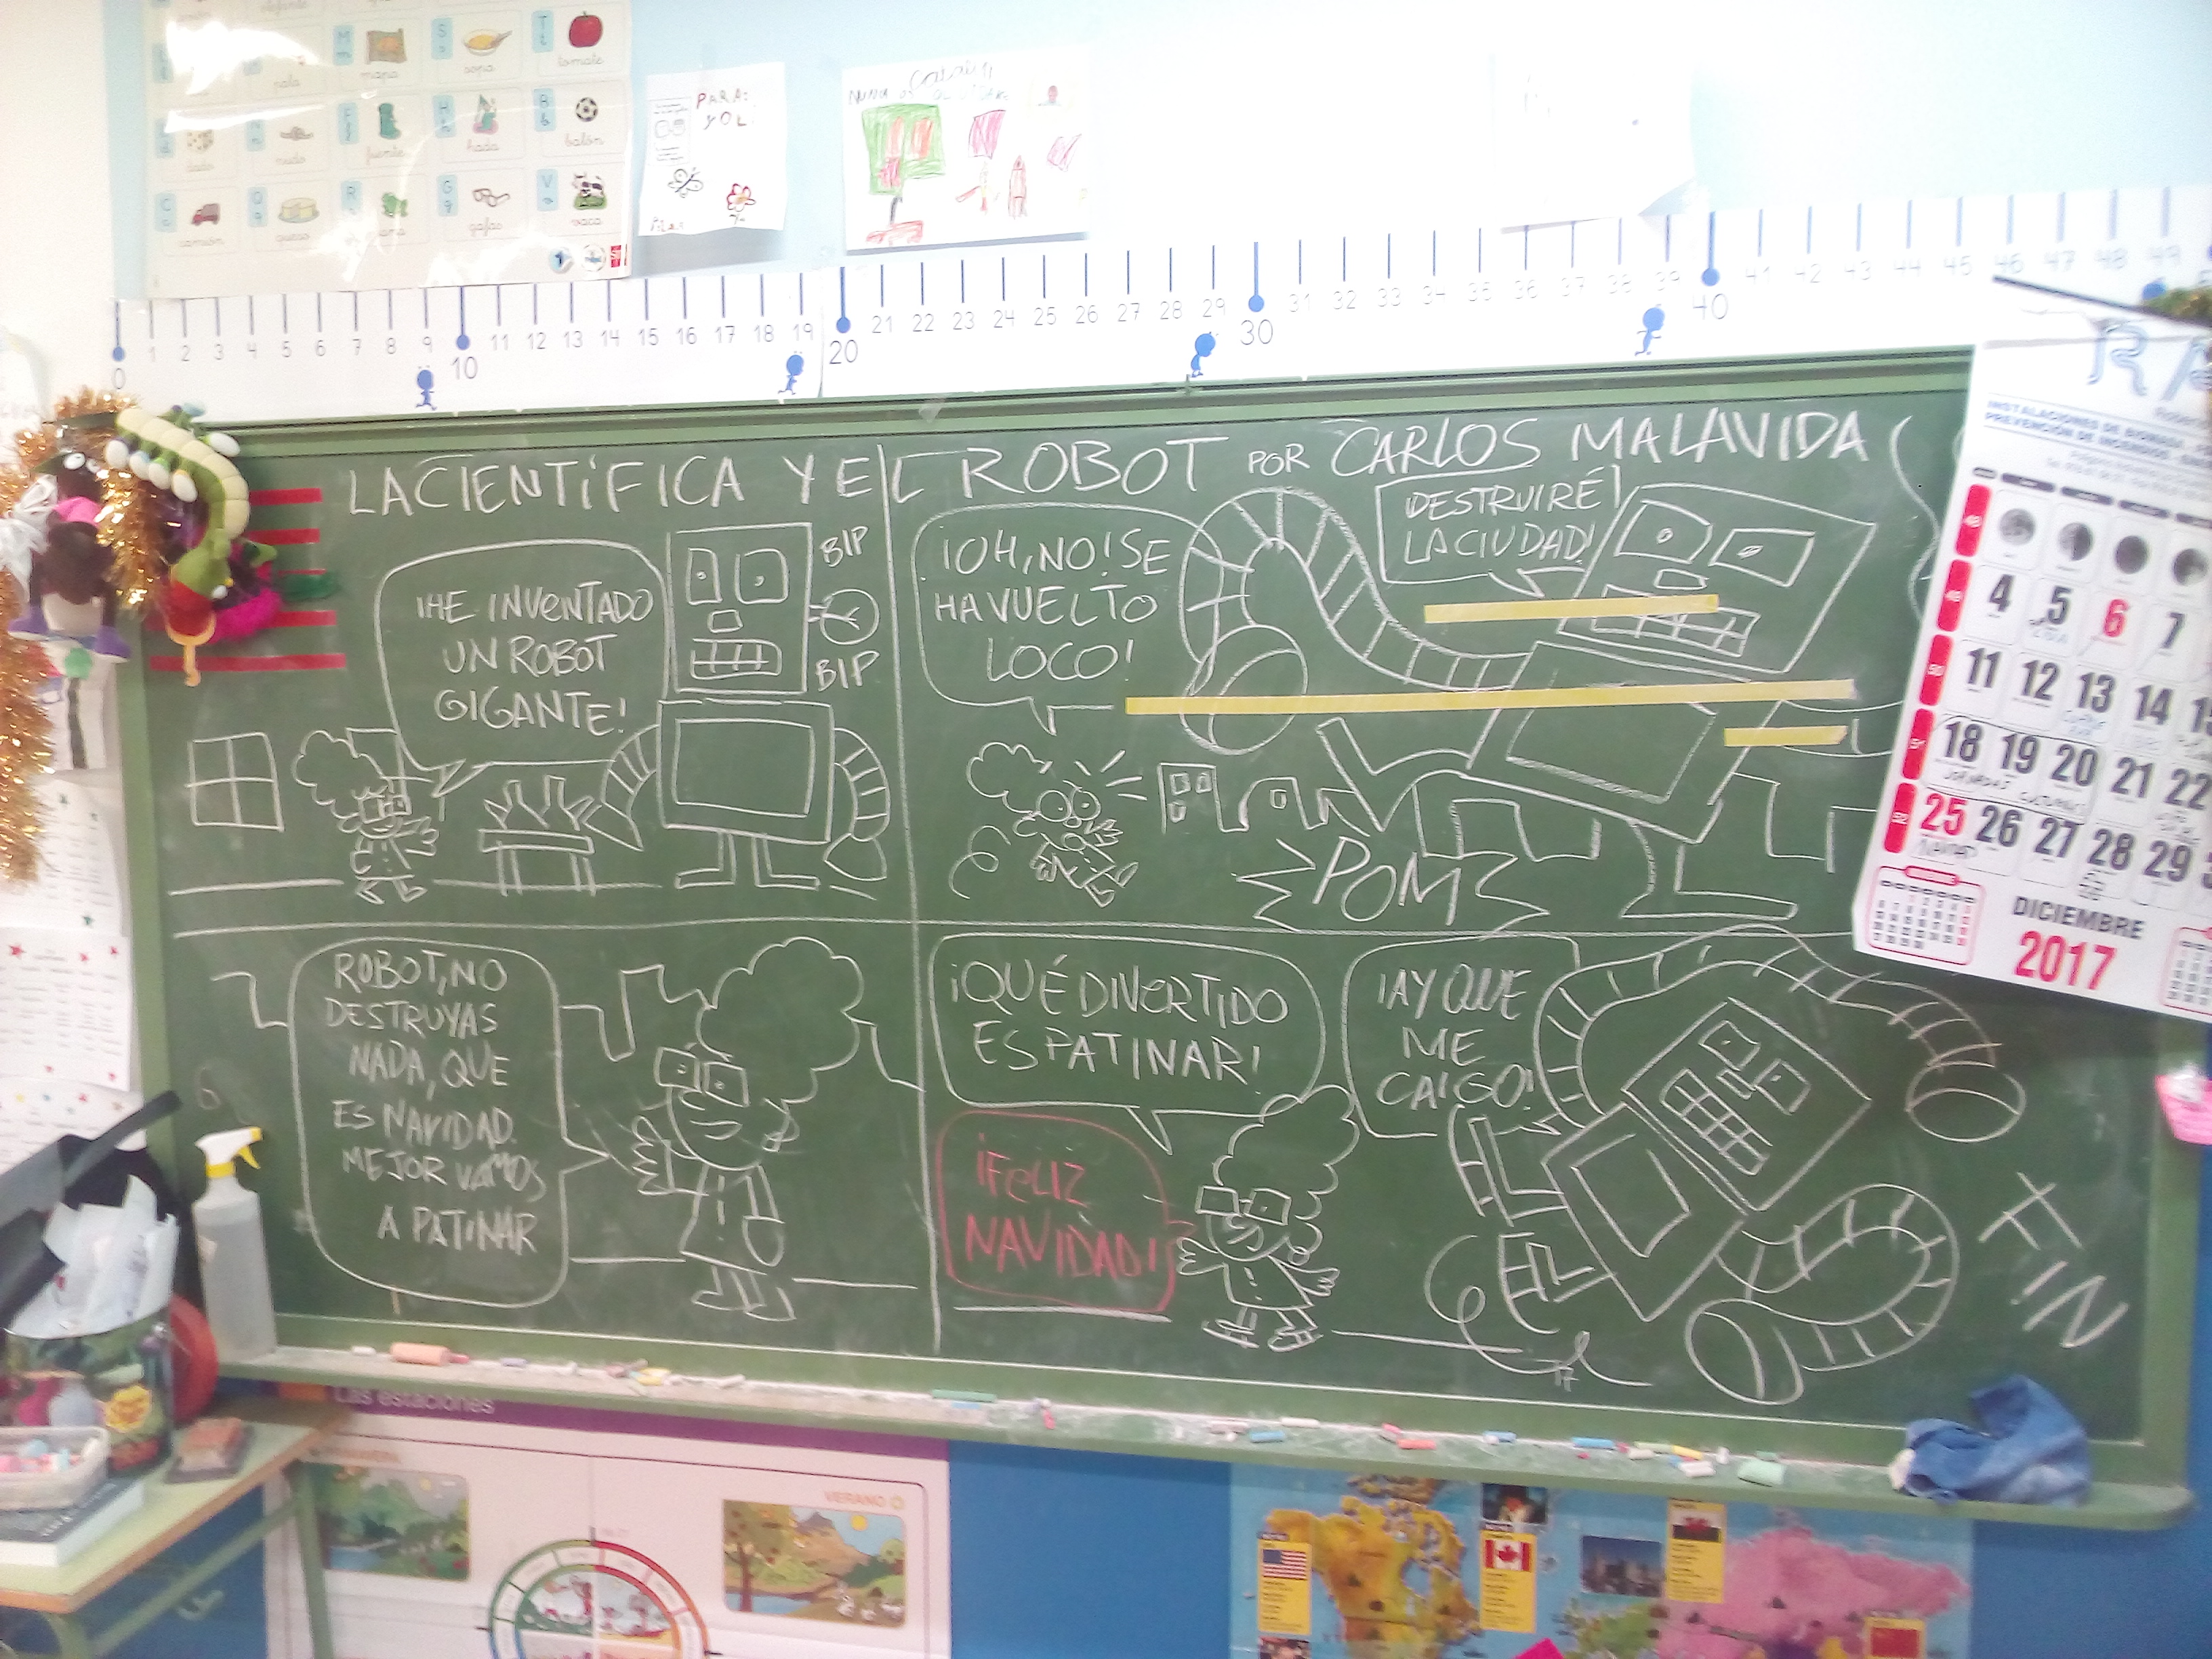 M
mapa
S
sopa
T
tomate
nudo
F
H
hada
B
balón
C
camión
Q
queso
R
G
gafas
V
vaca
PARA:
YOL
0 1 2 3 4 5 6 7 8 9 10 11 12 13 14 15 16 17 18 19 20 21 22 23 24 25 26 27 28 29 30 31 32 33 34 35 36 37 38 39 40 41 42 43 44 45 46 47 48 49
LA CIENTÍFICA Y EL ROBOT POR CARLOS MALAVIDA
¡HE INVENTADO
UN ROBOT
GIGANTE!
BIP
BIP
¡OH, NO! SE
HA VUELTO
LOCO!
¡DESTRUIRÉ
LA CIUDAD!
POM
ROBOT, NO
DESTRUYAS
NADA, QUE
ES NAVIDAD.
MEJOR VAMOS
A PATINAR
¡QUÉ DIVERTIDO
ES PATINAR!
¡FELIZ
NAVIDAD!
¡AY QUE
ME
CAIGO!
FIN
17
RA
INSTALACIONES DE BIOMASA
PREVENCIÓN DE INCENDIOS
4 5 6 7
11 12 13 14 15
18 19 20 21 22
25 26 27 28 29
49
50
51
52
DICIEMBRE
2017
Las estaciones
VERANO